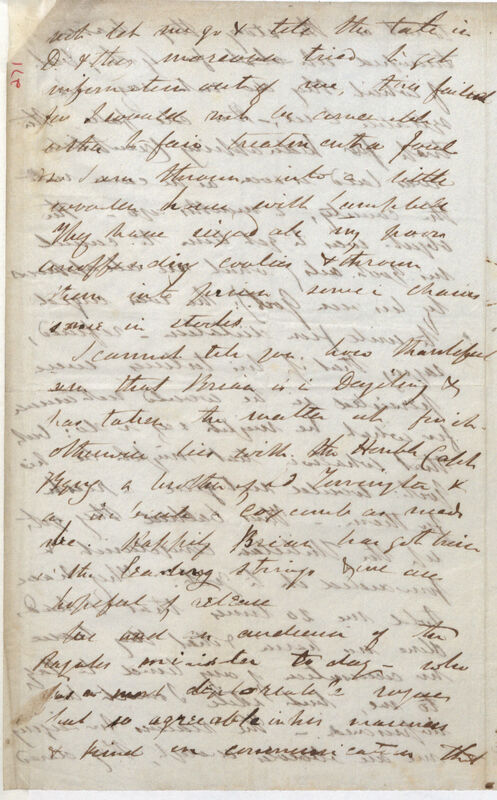 not let me go & tell the tale in
D. & they moreover tried to get
information out of me, this failed
for I would not be
fair treatment foul
so I am thrown into a little
wooden house with Campbell
They have seized all my poor
unoffending coolies & thrown
them into prison some in chains
some in stocks.
I cannot tell you how thankful
am that Brian is in Darjiling &
has taken the matter up
otherwise lies with the Honble
a brother of Ld Torrington &
as a coxcomb as need
be. Happily Brian has got him
in the leading strings & we are
hopeful of release
We had an audience of the
Rajahs minister to day – who
is a most deplorable rogue
but so agreeable in his manner
& kind in communication that
271